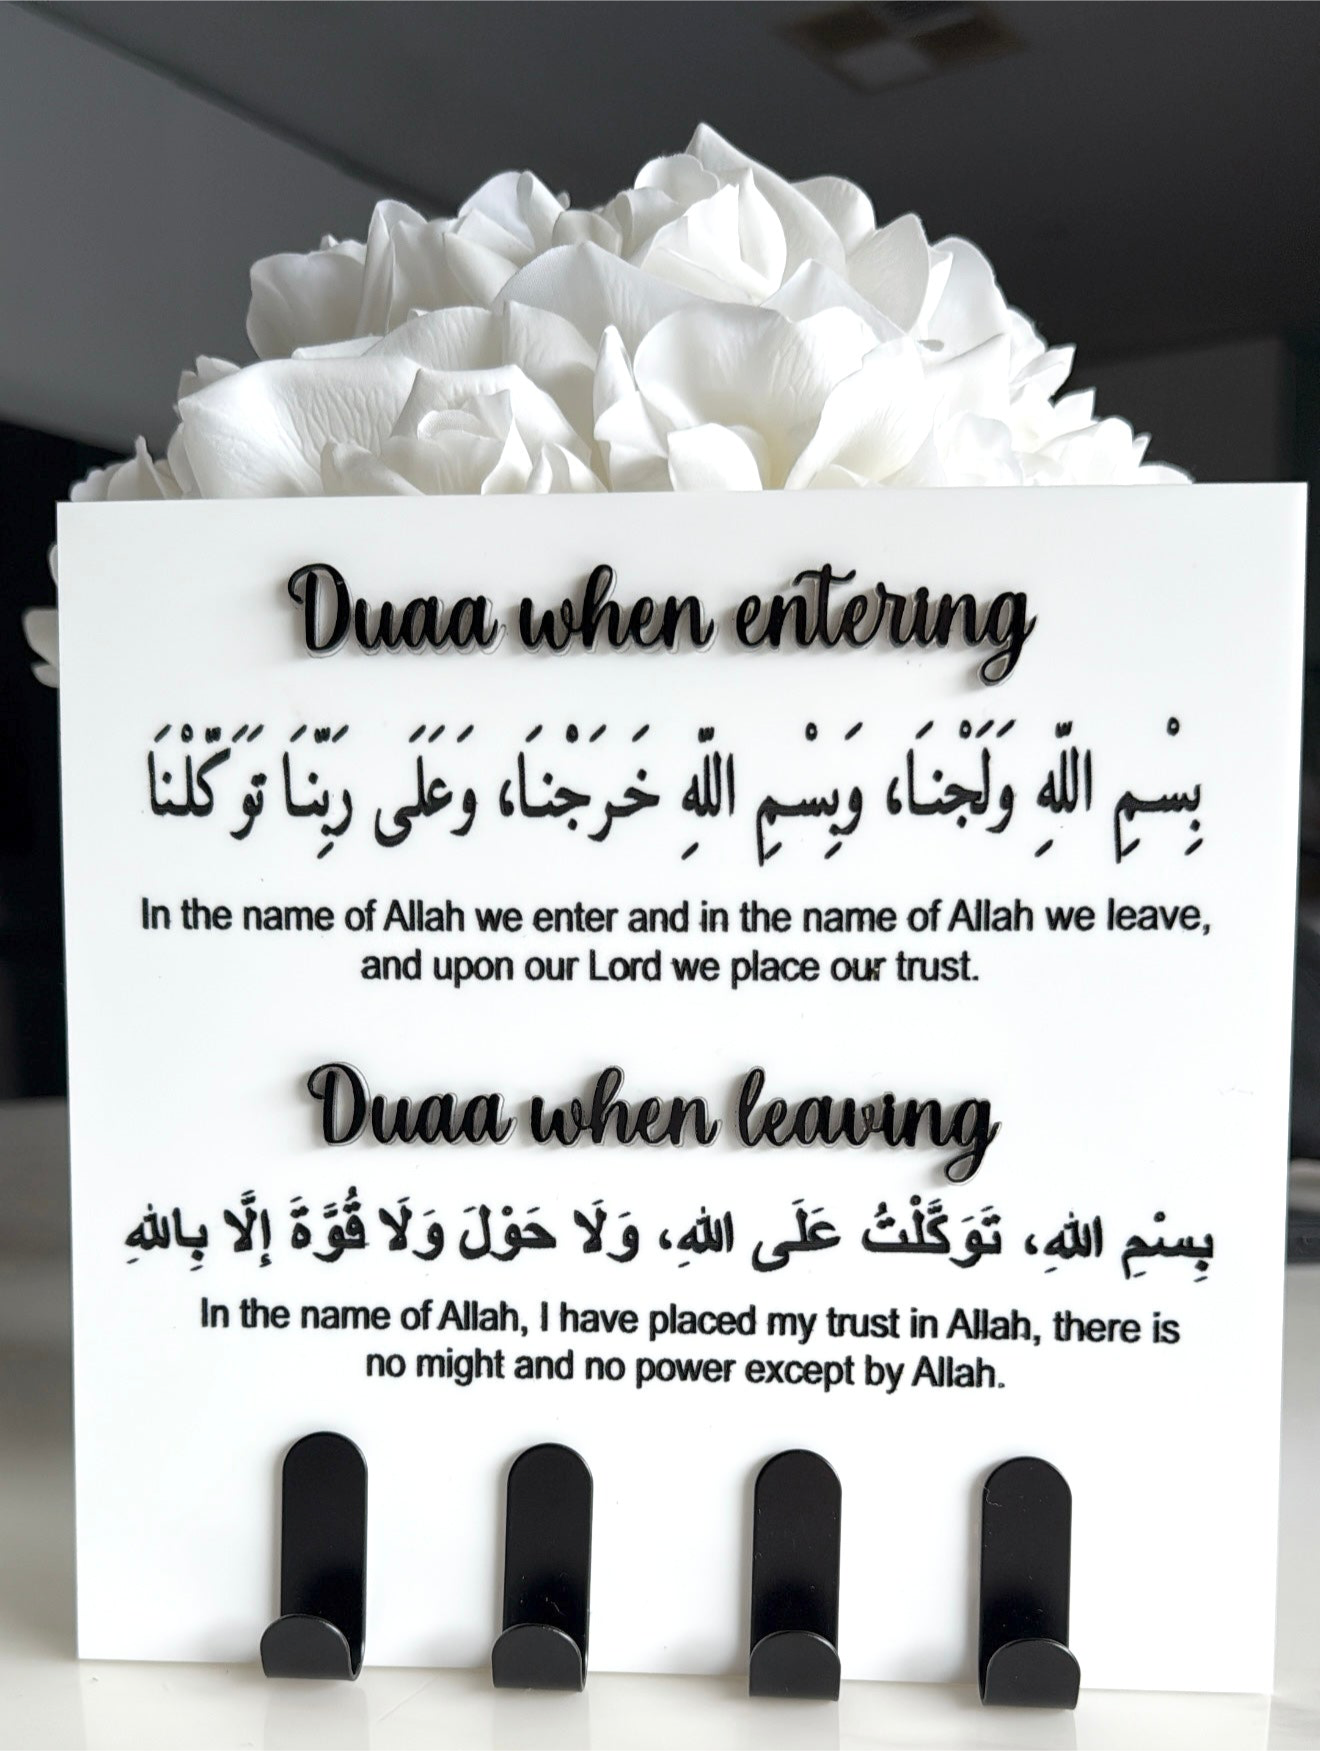 Duaa when entering
بِسْمِ اللَّهِ وَلَجْنَا، وَبِسْمِ اللَّهِ خَرَجْنَا، وَعَلَى رَبِّنَا تَوَكَّلْنَا
In the name of Allah we enter and in the name of Allah we leave,
and upon our Lord we place our trust.
Duaa when leaving
بِسْمِ اللهِ، تَوَكَّلْتُ عَلَى اللهِ، وَلَا حَوْلَ وَلَا قُوَّةَ إِلَّا بِاللهِ
In the name of Allah, I have placed my trust in Allah, there is
no might and no power except by Allah.